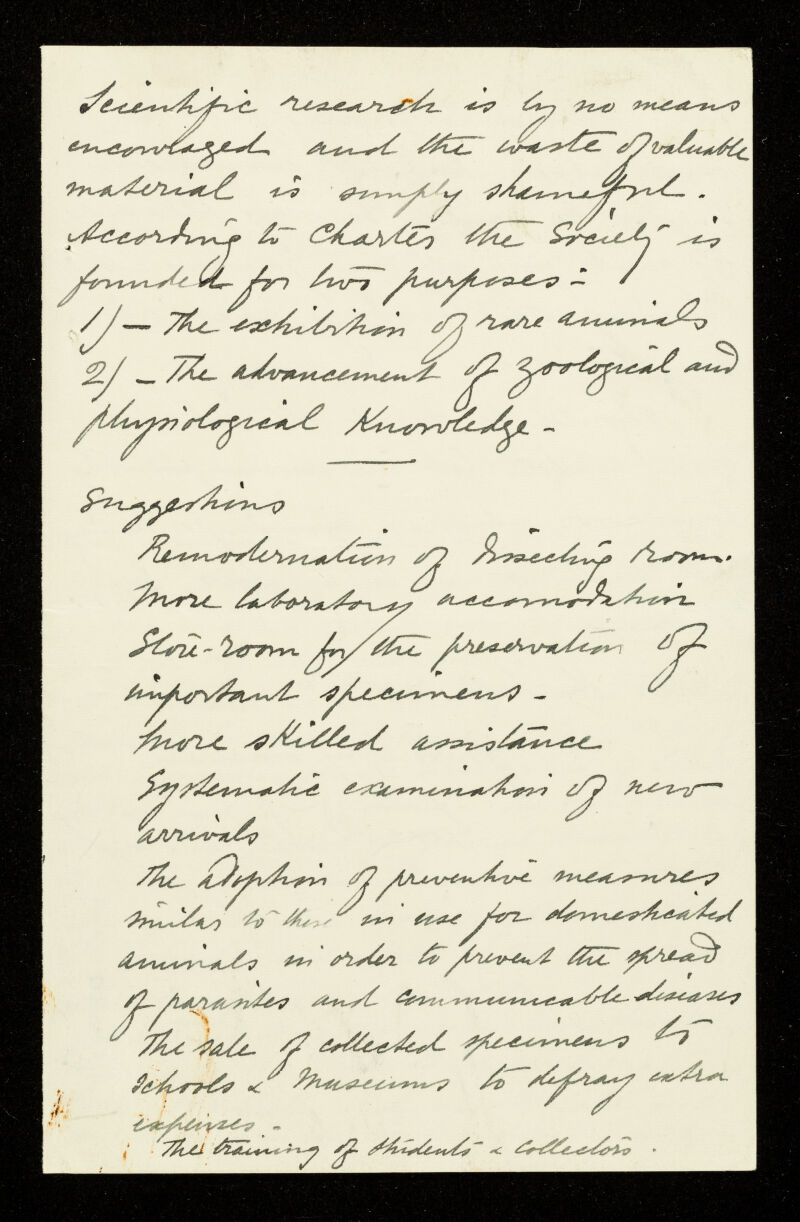 Scientific research is by no means
encouraged and the waste of valuable
material is simply shameful.
According to Charter the Society is
founded for two purposes:
1) - The exhibition of rare animals
2) - The advancement of zoological and
physiological Knowledge -
Suggestions
Remodernation of dissecting room.
More laboratory accomodation
Store-room for the preservation of
important specimens -
More skilled assistance
Systematic examination of new
arrivals
The adoption of preventive measures
similar to those in use for domesticated
animals in order to prevent the spread
of parasites and communicable diseases
The sale of collected specimens to
Schools & Museums to defray extra
expenses -
The training of students & collectors.